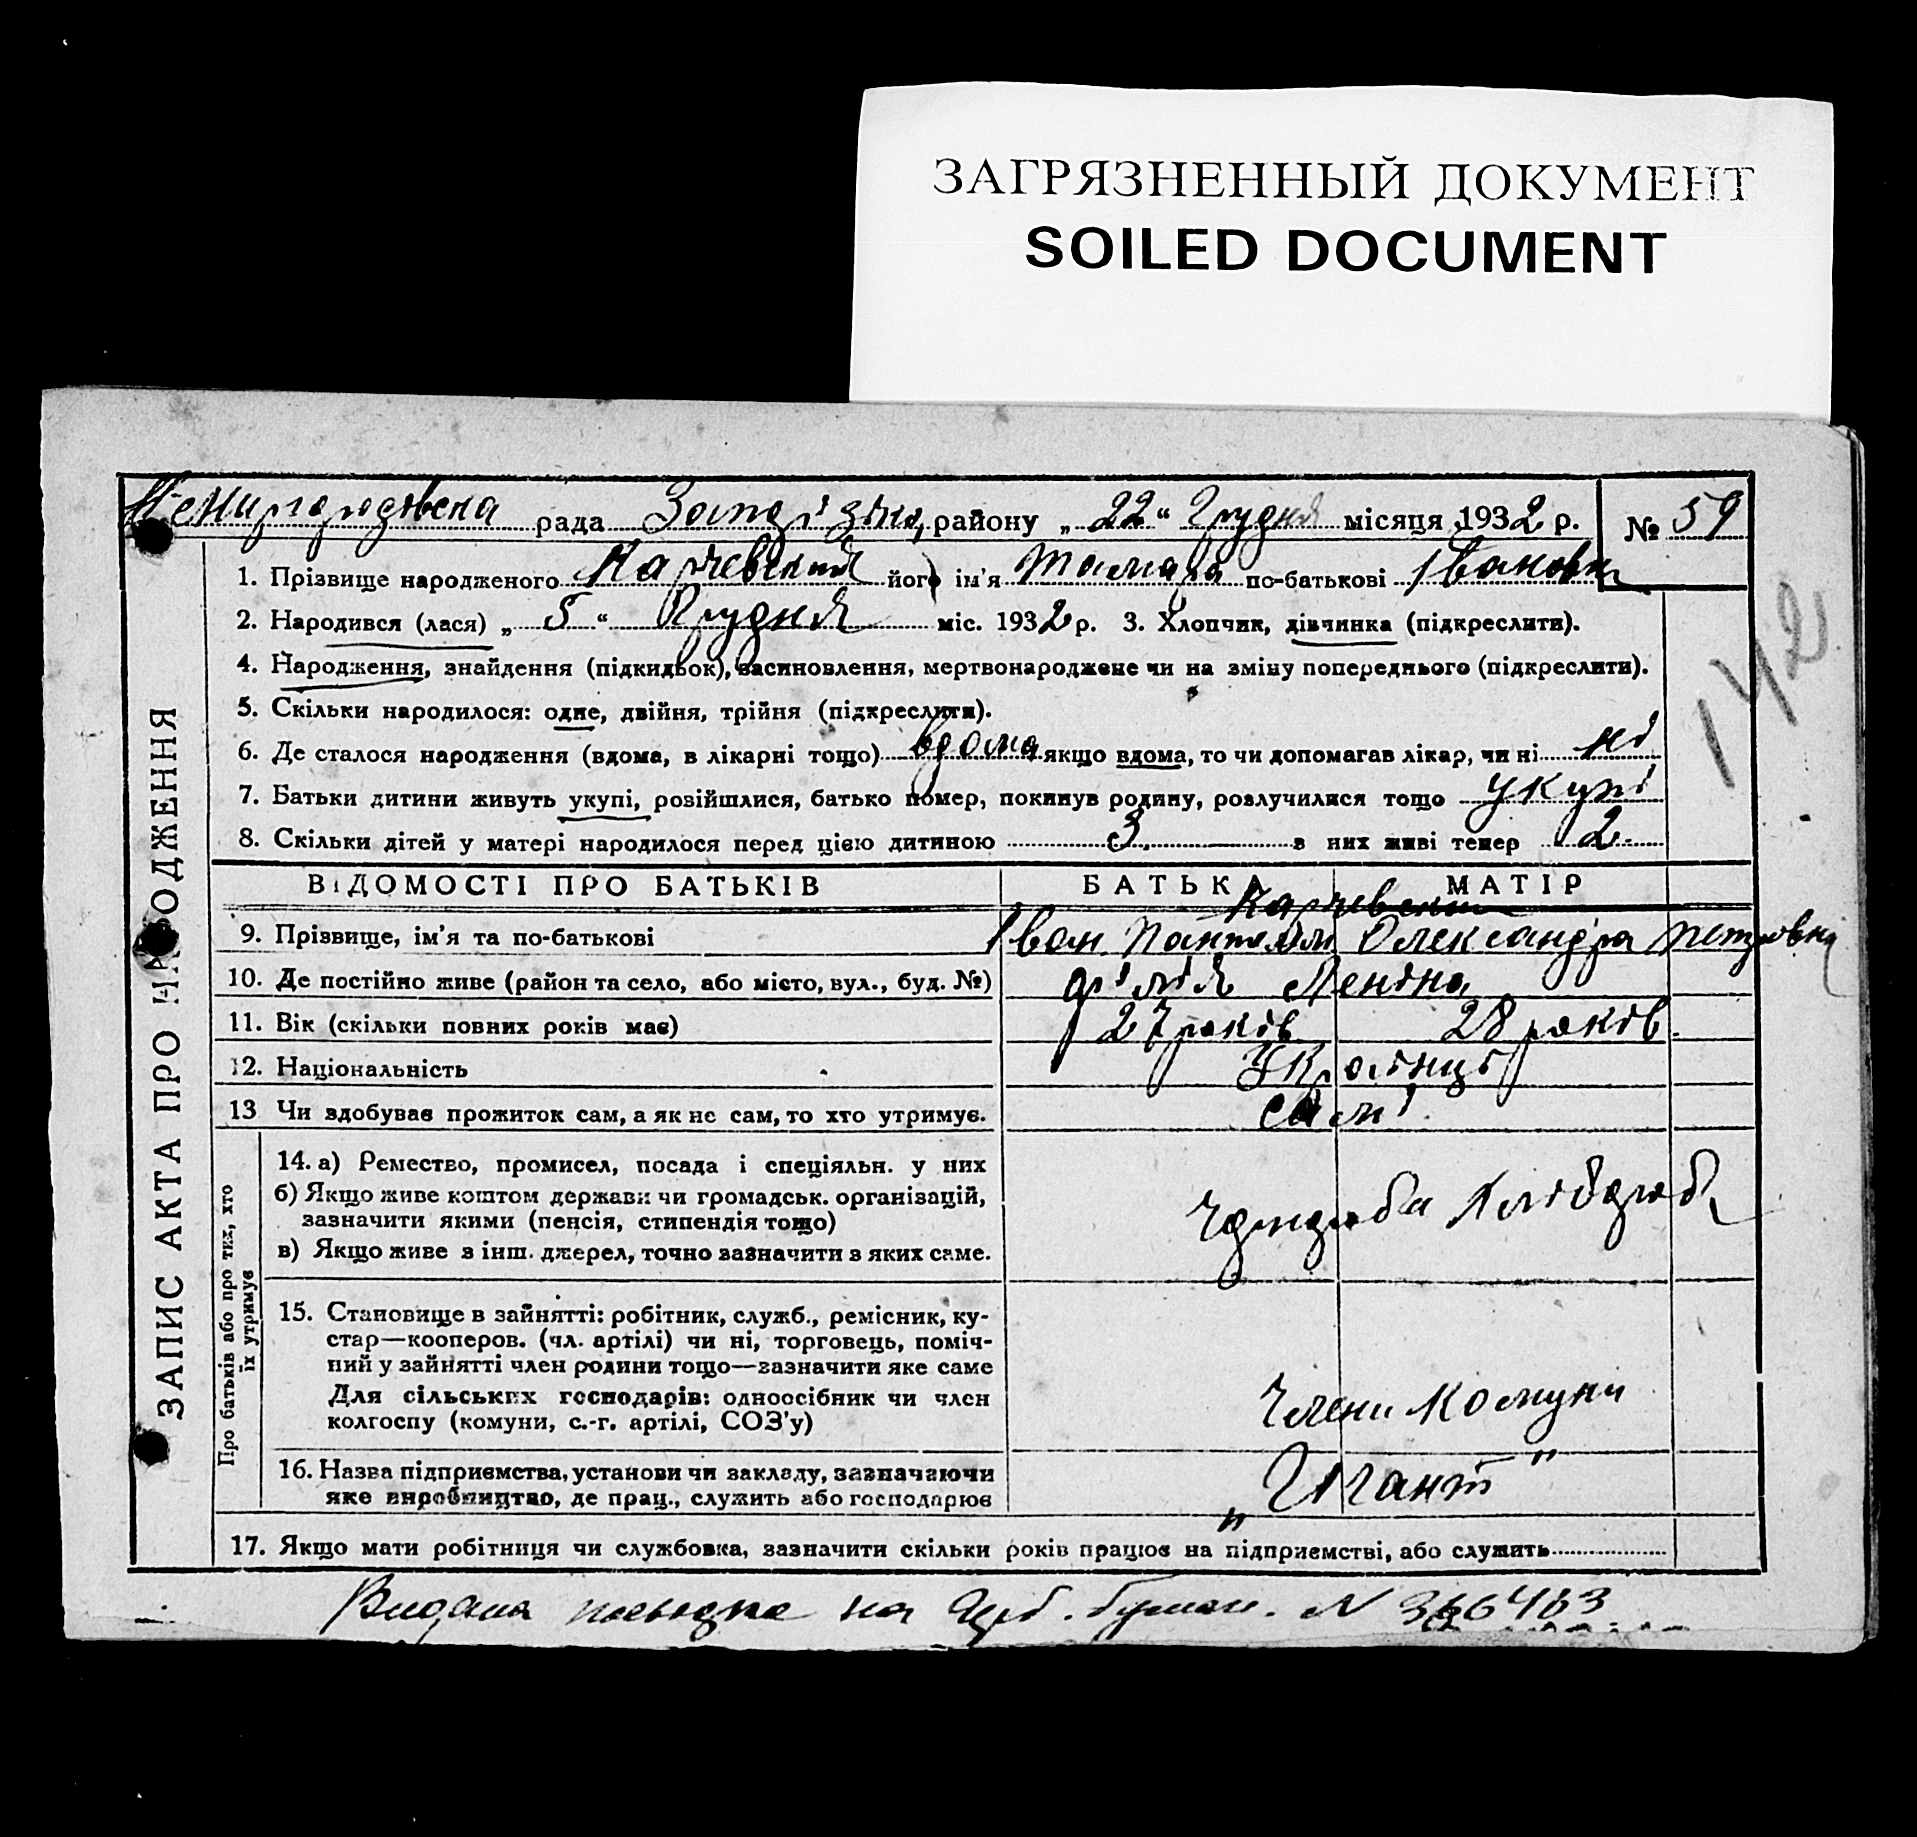 ЗАГРЯЗНЕННЫЙ ДОКУМЕНТ
SOILED DOCUMENT
рада району „22“ Грудня місяця 1932 р. № 59
1. Прізвище народженого його ім'я Тамара по-батькові Івановна
2. Народився (лася) „5“ Грудня міс. 1932 р. 3. Хлопчик, дівчинка (підкреслити).
4. Народження, знайдення (підкидьок), засиновлення, мертвонароджене чи на зміну попереднього (підкреслити).
5. Скільки народилося: одне, двійня, трійня (підкреслити).
6. Де сталося народження (вдома, в лікарні тощо) вдома якщо вдома, то чи допомагав лікар, чи ні ні
7. Батьки дитини живуть укупі, розійшлися, батько помер, покинув родину, розлучилися тощо укупі
8. Скільки дітей у матері народилося перед цією дитиною 3 з них живі тепер 2
142
ЗАПИС АКТА ПРО НАРОДЖЕННЯ
ВІДОМОСТІ ПРО БАТЬКІВ БАТЬКА МАТІР
9. Прізвище, ім'я та по-батькові Іван Олександра Петровна
10. Де постійно живе (район та село, або місто, вул., буд. №) філія Леніна
11. Вік (скільки повних років має) 27 років 28 років
12. Національність Українці
13 Чи здобував прожиток сам, а як не сам, то хто утримує. самі
Про батьків або про тих, хто їх утримує
14. а) Ремество, промисел, посада і спеціяльн. у них
б) Якщо живе коштом держави чи громадськ. організацій,
зазначити якими (пенсія, стипендія тощо)
в) Якщо живе з інш. джерел, точно зазначити з яких саме.
Хлібороб
15. Становище в зайнятті: робітник, служб., ремісник, ку-
стар—кооперов. (чл. артілі) чи ні, торговець, поміч-
ний у зайнятті член родини тощо—зазначити яке саме
Для сільських господарів: одноосібник чи член
колгоспу (комуни, с.-г. артілі, СОЗ'у)
Члени Комуни
16. Назва підприємства, установи чи закладу, зазначаючи
яке виробництво, де прац., служить або господарює
„Гігант"
17. Якщо мати робітниця чи службовка, зазначити скільки років працює на підприємстві, або служить
Видана на бумаги. N